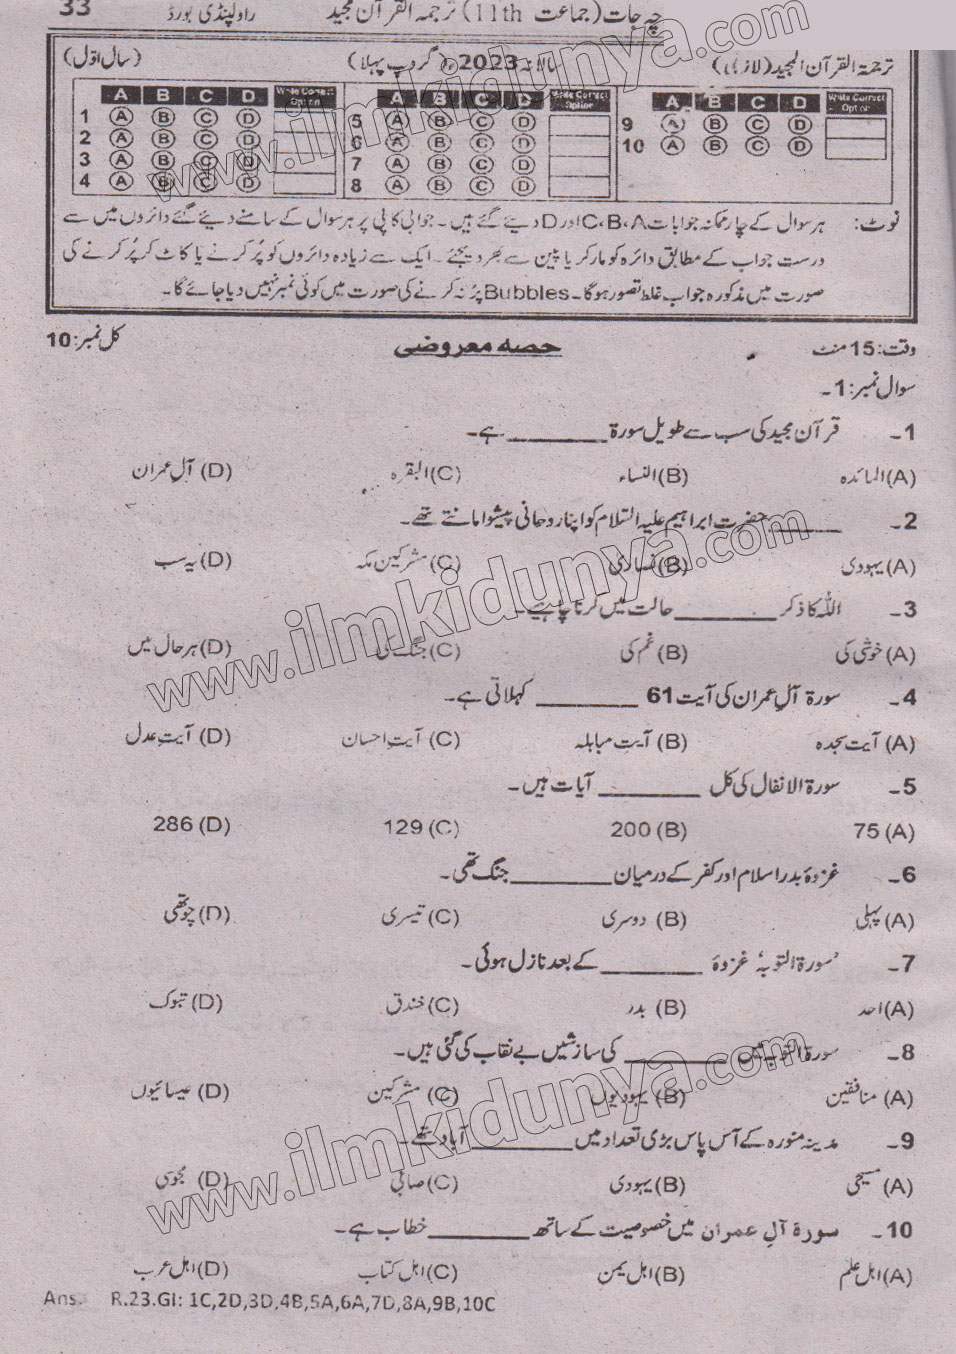 33 چہ جات (جماعت 11th) ترجمہ القرآن مجید راولپنڈی بورڈ
ترجمۃ القرآن المجید (لازمی) سالانہ 2023ء (گروپ پہلا) (سال اوّل)
A B C D Write Correct Option A B C D Write Correct Option A B C D Write Correct Option
1 A B C D
2 A B C D
3 A B C D
4 A B C D
5 A B C D
6 A B C D
7 A B C D
8 A B C D
9 A B C D
10 A B C D
نوٹ: ہر سوال کے چار ممکنہ جوابات C، B، A اور D دیئے گئے ہیں۔ جوابی کاپی پر ہر سوال کے سامنے دیئے گئے دائروں میں سے
درست جواب کے مطابق دائرہ کو مارکر یا پین سے بھر دیجئے۔ ایک سے زیادہ دائروں کو پُر کرنے یا کاٹ کر پُر کرنے کی
صورت میں مذکورہ جواب غلط تصور ہوگا۔ Bubbles پُر نہ کرنے کی صورت میں کوئی نمبر نہیں دیا جائے گا۔
وقت: 15 منٹ حصہ معروضی کل نمبر: 10
سوال نمبر: 1۔
1۔ قرآن مجید کی سب سے طویل سورۃ ________ ہے۔
(A) المائدہ (B) النساء (C) البقرہ (D) آلِ عمران
2۔ ________ حضرت ابراہیم علیہ السّلام کو اپنا روحانی پیشوا مانتے تھے۔
(A) یہودی (B) نصاریٰ (C) مشرکینِ مکہ (D) یہ سب
3۔ اللہ کا ذکر ________ حالت میں کرنا چاہیے۔
(A) خوشی کی (B) غم کی (C) جنگ کی (D) ہر حال میں
4۔ سورۃ آلِ عمران کی آیت 61 ________ کہلاتی ہے۔
(A) آیت سجدہ (B) آیتِ مباہلہ (C) آیتِ احسان (D) آیتِ عدل
5۔ سورۃ الانفال کی کل ________ آیات ہیں۔
(A) 75 (B) 200 (C) 129 (D) 286
6۔ غزوۂ بدر اسلام اور کفر کے درمیان ________ جنگ تھی۔
(A) پہلی (B) دوسری (C) تیسری (D) چوتھی
7۔ 'سورۃ التوبہ' غزوۂ ________ کے بعد نازل ہوئی۔
(A) احد (B) بدر (C) خندق (D) تبوک
8۔ سورۃ التوبہ میں ________ کی سازشیں بے نقاب کی گئی ہیں۔
(A) منافقین (B) یہودیوں (C) مشرکین (D) عیسائیوں
9۔ مدینہ منورہ کے آس پاس بڑی تعداد میں ________ آباد تھے۔
(A) مسیحی (B) یہودی (C) صابی (D) مجوسی
10۔ سورۃ آلِ عمران میں خصوصیت کے ساتھ ________ خطاب ہے۔
(A) اہل علم (B) اہل یمن (C) اہل کتاب (D) اہل عرب
Ans. R.23.GI: 1C,2D,3D,4B,5A,6A,7D,8A,9B,10C
www.ilmkidunya.com
www.ilmkidunya.com
www.ilmkidunya.com